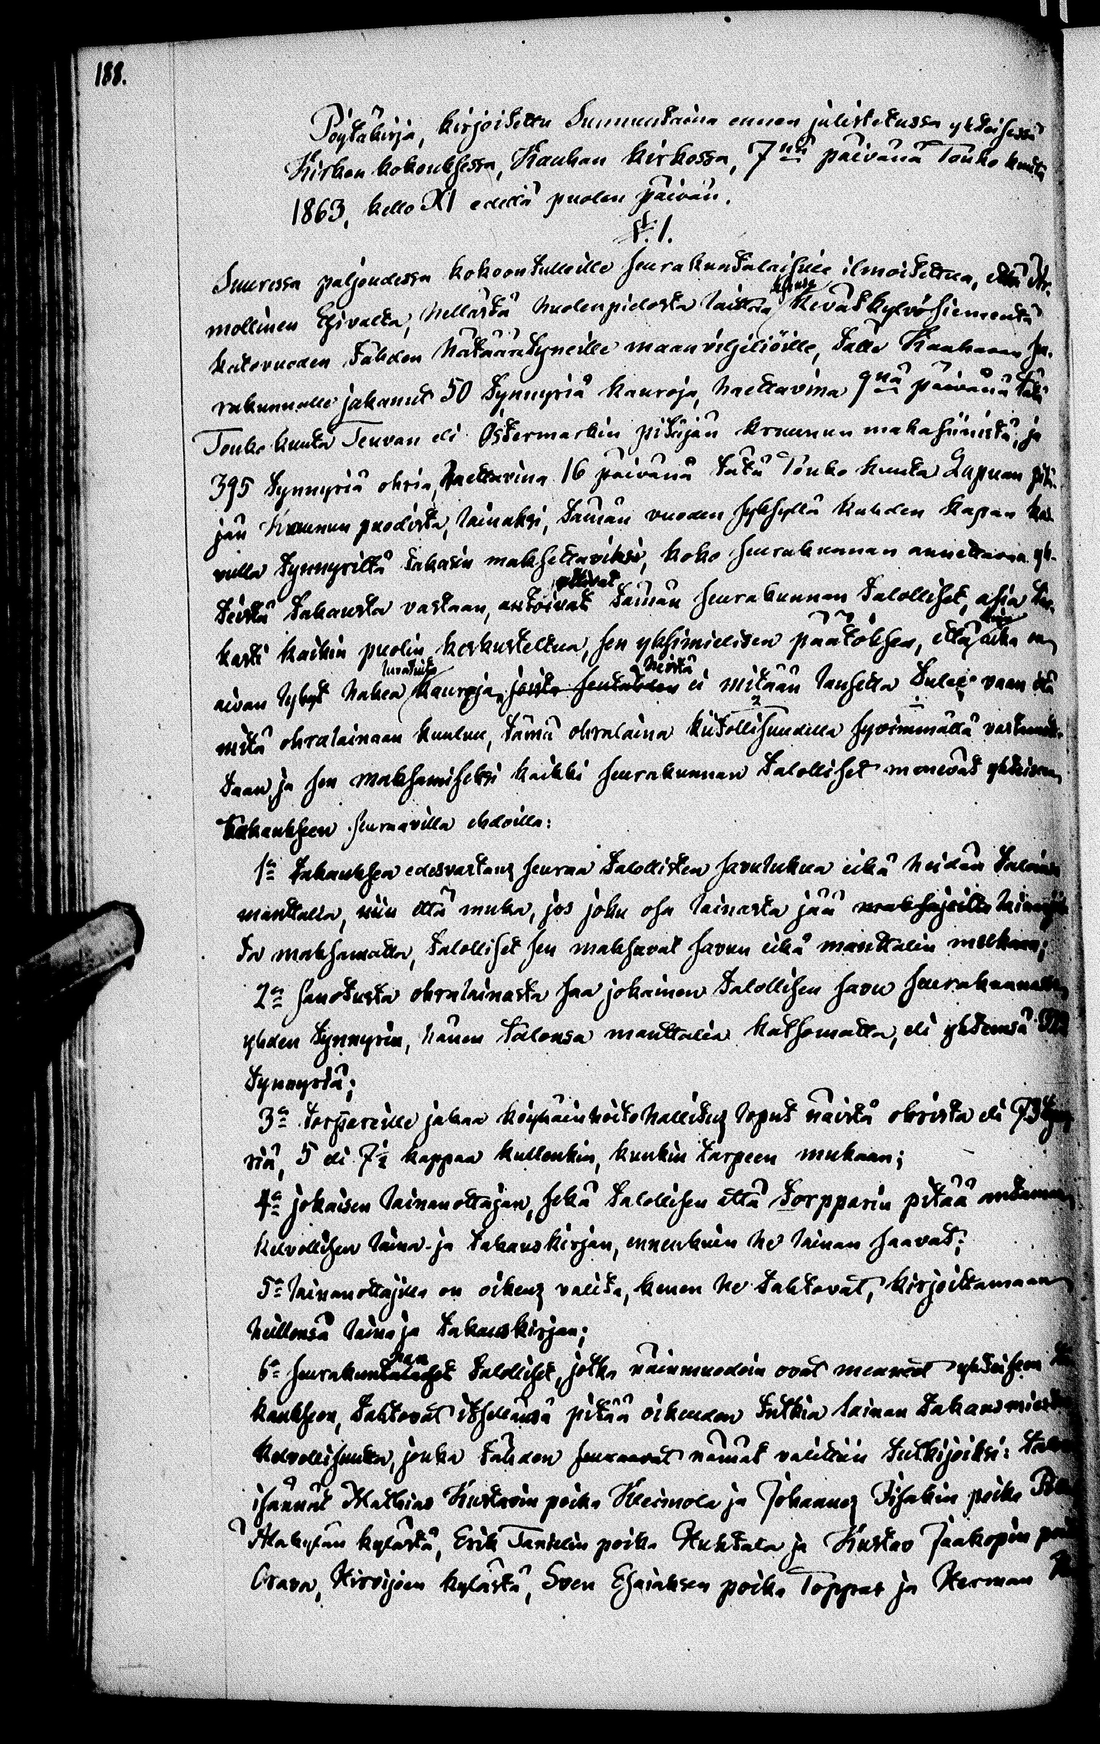 188.
Pöytäkirja, kirjoitettu Sunnuntaina ennen julistetussa yhteisessä
Kirkon kokouksessa, Kauhavan kirkossa, 7nä päivänä Touko kuuta
1863, kello XI edellä puolen päivän.
§. 1.
Suuressa paljoudessa kokoontulleille seurakuntalaisille ilmoitettua, että Ar-
mollinen Esivalta, hellästä huolenpidosta laittaa kevätkylvösiementä
katovuoden tähden hätääntyneille maanviljeliöille, tälle Kauhavan seu-
rakunnalle jakanut 50 Tynnyriä kauroja, haettavina 9nä päivänä tätä
Touko kuuta Teuvan eli Östermarkin pitäjän kruunun makasiinista, ja
395 Tynnyriä ohria, haettavina 16 päivänä tätä Touko kuuta Lapuan pitä-
jän Kruunun puodista, lainaksi, tämän vuoden syksyllä kahden kapan kas-
vulla Tynnyriltä takasin maksettaviksi, koko seurakunnan annettava yh-
teistä takausta vastaan, ottivat tämän seurakunnan talolliset, asia tar-
kasti kaikin puolin keskusteltua, sen yksimielisen päätöksen, että aika on
aivan lyhyt hakea luvatuita kauroja, joista sentähden heistä ei mitään lausetta tule, vaan että
mitä ohralainaan kuuluu, tämä ohralaina kiitollisuudella syvimmällä vastaanote-
taan, ja sen maksamiseksi kaikki seurakunnan talolliset menevät yhteiseen
takaukseen seuraavilla ehdoilla:
1a takauksen edesvastaus seuraa talollisten savulukua eikä heidän talonsa
manttalia, niin että muka, jos joku osa lainasta jää maksajoilta lainaajilta
ta maksamatta, talolliset sen maksavat savun eikä manttalin mukaan;
2a sanotusta ohralainasta saa jokainen talollisen savu seurakunnassa
yhden Tynnyrin, hänen talonsa manttalia katsomatta, eli yhteensä 322
Tynnyriä;
3a torppareille jakaa köyhäinhoitohallitus loput näistä ohrista eli 73 Tynny-
riä, 5 eli 7½ kappaa kullenkin, kunkin tarpeen mukaan;
4a jokaisen lainanottajan, sekä talollisen että torpparin pitää antaman
kelvollisen laina- ja takauskirjan, ennenkuin he lainan saavat;
5a lainanottajilla on oikeus valita, kenen he tahtovat, kirjoittamaan
heillensä laina ja takauskirjan;
6a seurakunnan talolliset, jotka näinmuodoin ovat menneet yhteiseen ta-
kaukseen, tahtovat itsellänsä pitää oikeuden tutkia lainan takausmiesten
kelvollisuutta, jonka tähden seuraavat nämät valittiin tutkijoiksi: talon
isännät Mathias Kustavin poika Kleimola ja Johannes Iisakin poika
Alakylän kylästä, Erik Tanelin poika Huhtala ja Kustav Jaakopin poika
Orava, Hirvijoen kylästä, Sven Esaiaksen poika Toppar ja Herman